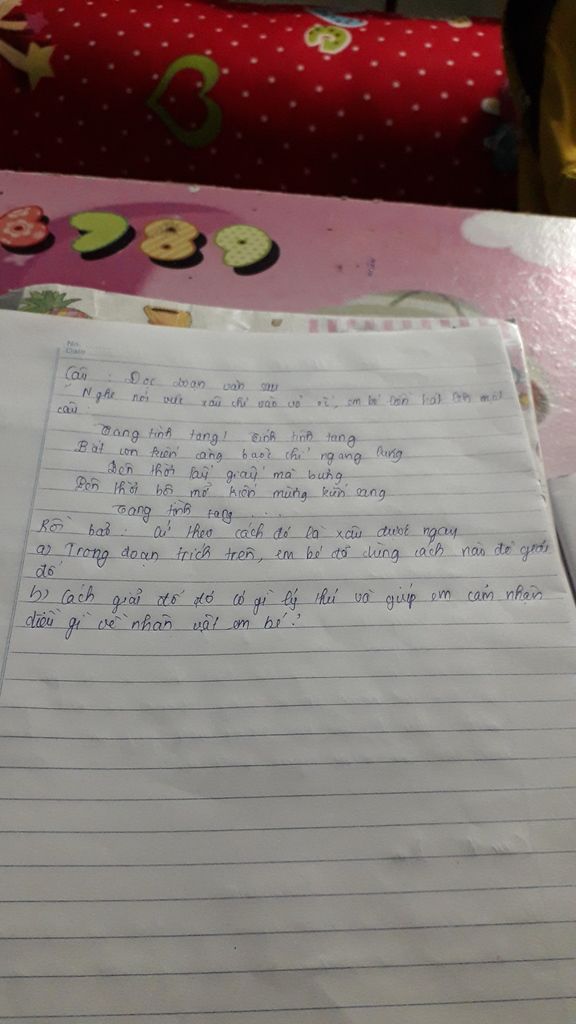 No.
Date
Câu : Đọc đoạn văn sau
"Nghe nói việc xâu chỉ vào vỏ ốc, em bé liền hát lên một
câu :
Tang tình tang! Tính tình tang
Bắt con kiến càng buộc chỉ ngang lưng
Bên thời lấy giấy mà bưng
Bên thời bôi mỡ kiến mừng kiến sang
Tang tình tang . . .
Rồi bảo : Cứ theo cách đó là xâu được ngay
a) Trong đoạn trích trên, em bé đã dùng cách nào để giải
đố
b) Cách giải đố đó có gì lý thú và giúp em cảm nhận
điều gì về nhân vật em bé ?